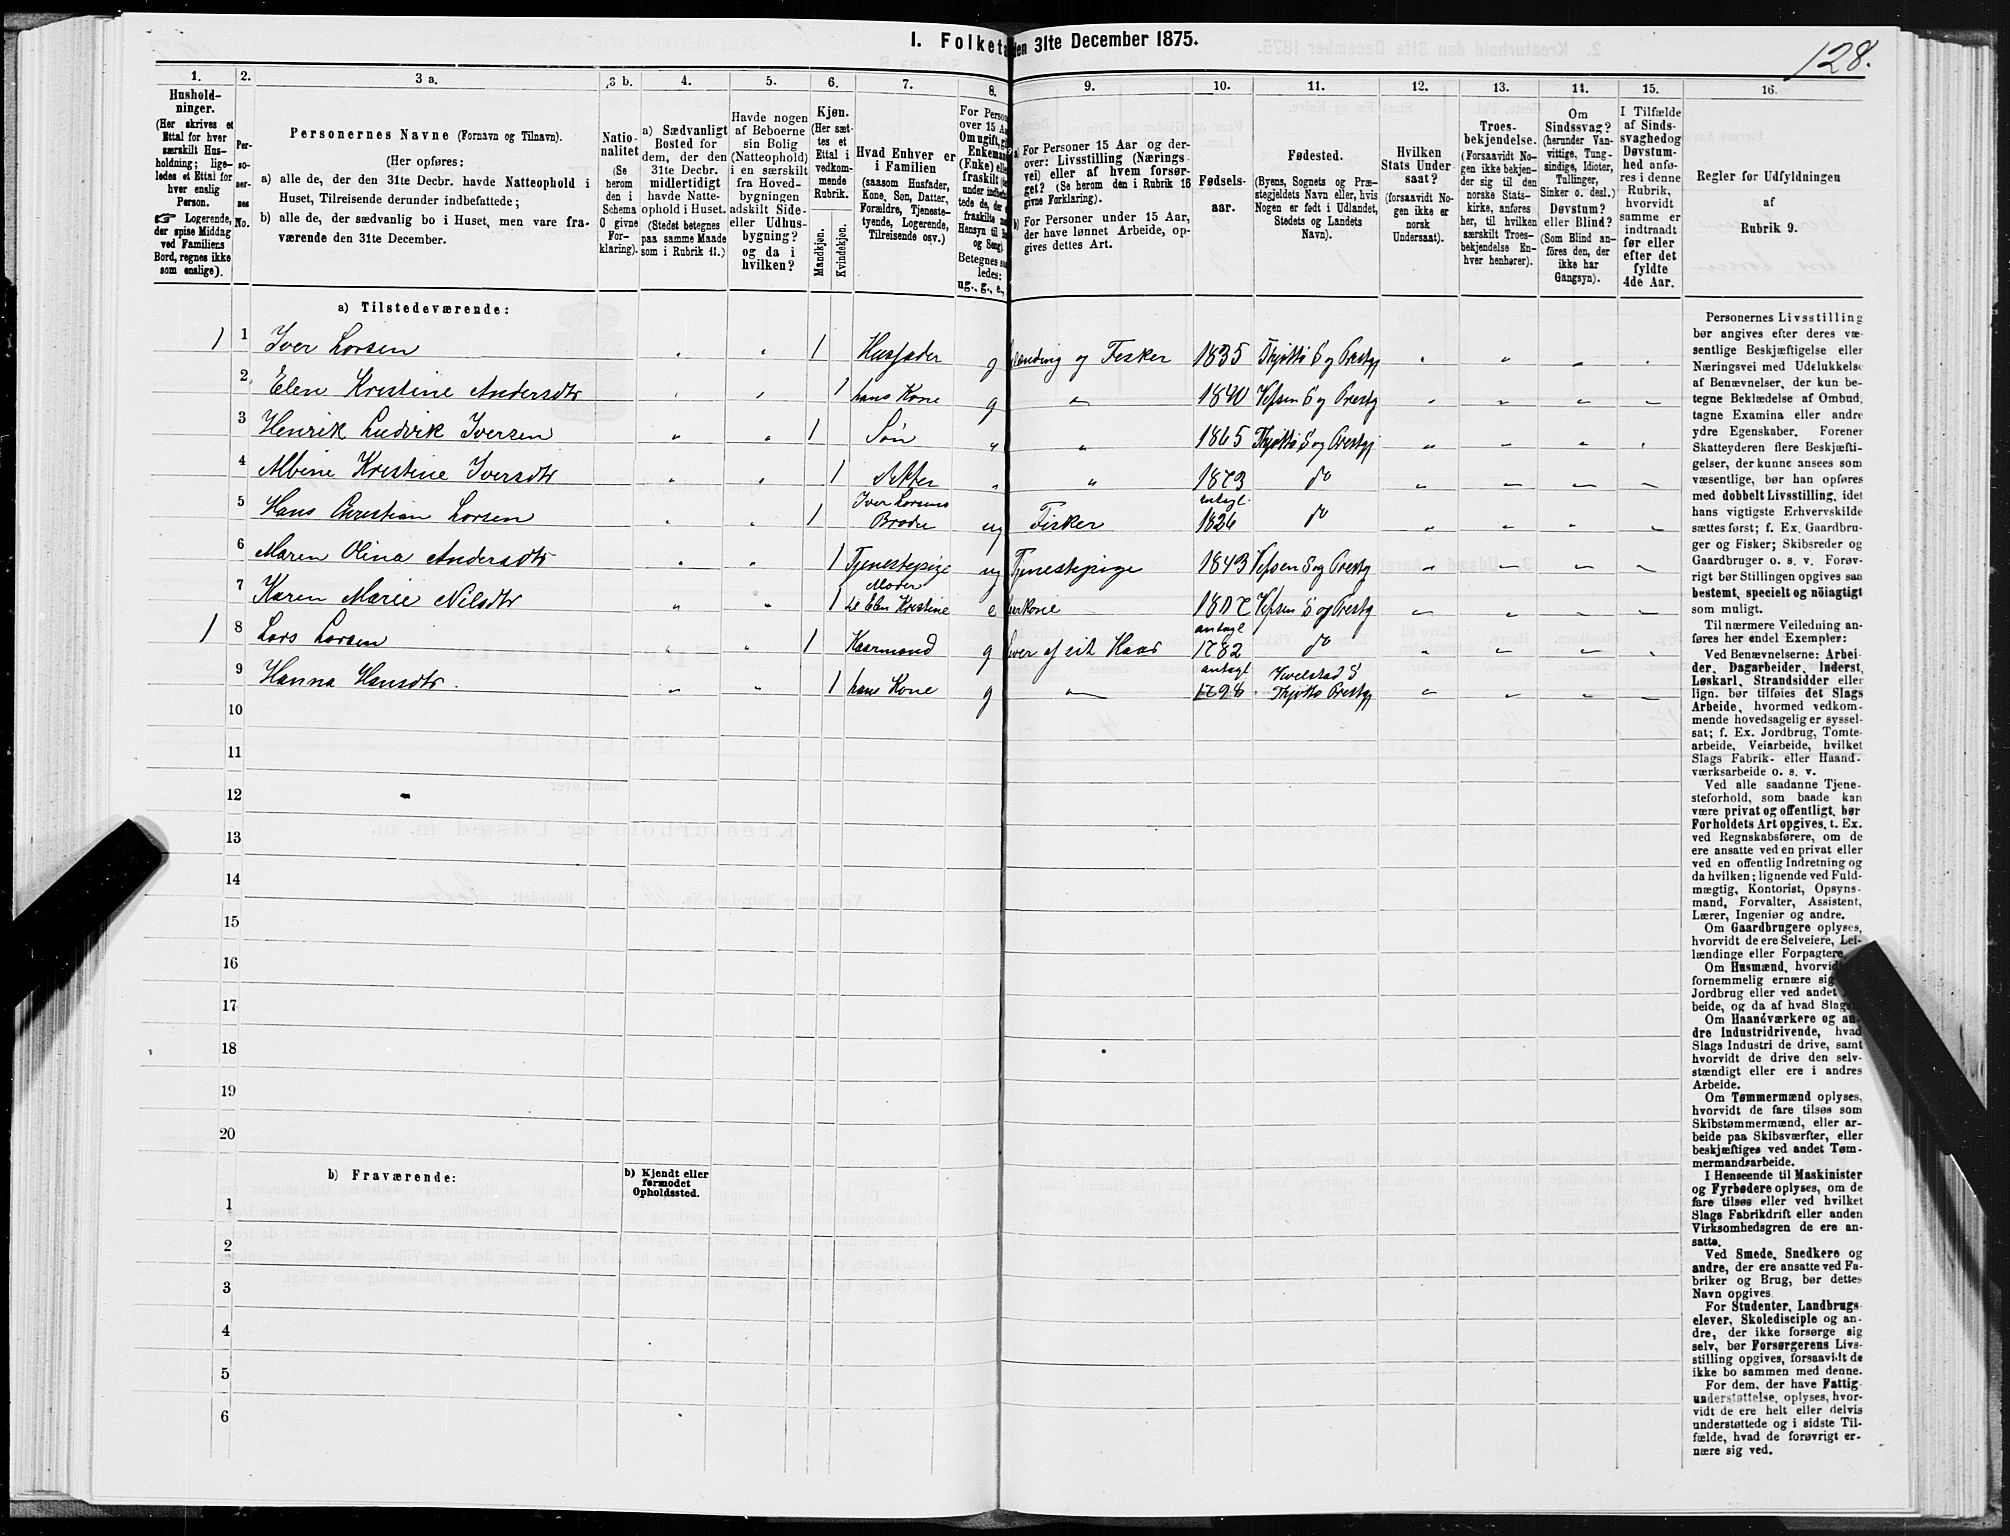 I. Folketæ
den 31te December 1875.
128.
1.
2.
3 a.
3 b.
4.
5.
6.
7.
8.
9.
10.
11.
12.
13.
14.
15.
16.
Hushold-
ninger.
(Her skrives et
Ettal for hver
særskilt Hus-
holdning; lige-
ledes et Ettal for
hver enslig
Person.
☞ Logerende,
der spise Middag
ved Familiens
Bord, regnes ikke
som enslige).
Per-
so-
ner-
nes
No.
Personernes Navne (Fornavn og Tilnavn).
(Her opføres:
a) alle de, der den 31te Decbr. havde Natteophold i
Huset, Tilreisende derunder indbefattede;
b) alle de, der sædvanlig bo i Huset, men vare fra-
værende den 31te December.
Natio-
nalitet
(Se
herom
den i
Schema
O givne
For-
klaring).
a) Sædvanligt
Bosted for
dem, der den
31te Decbr.
midlertidigt
havde Natte-
ophold i Huset.
(Stedet betegnes
paa samme Maade
som i Rubrik 11.)
Havde nogen
af Beboerne
sin Bolig
(Natteophold)
i en særskilt
fra Hoved-
bygningen
adskilt Side-
eller Udhus-
bygning?
og da i
hvilken?
Kjøn.
(Her sæt-
tes et
Ettal i
vedkom-
mende
Rubrik.
Mandkjøn.
Kvindekjøn.
Hvad Enhver er
i Familien
(saasom Husfader,
Kone, Søn, Datter,
Forældre, Tjeneste-
tyende, Logerende,
Tilreisende osv.)
For Person
over 15 Aa
Om ugift, gif
Enkeman
(Enke) elle
fraskilt (
under indbefa
tede de, der e
fraskilte m
Hensyn til Bo
og Seng).
Betegnes saa
ledes:
ug., g., e.,
a) For Personer 15 Aar og der-
over: Livsstilling (Nærings
vei) eller af hvem forsør-
get? (Se herom den i Rubrik 16
givne Forklaring).
b) For Personer under 15 Aar,
der have lønnet Arbeide, op-
gives dettes Art.
Fødsels-
aar.
Fødested.
(Byens, Sognets og Præ-
stegjeldets Navn eller, hvis
Nogen er født i Udlandet,
Stedets og Landets
Navn).
Hvilken
Stats Under
saat?
(forsaavidt No-
gen ikke er
norsk
Undersaat).
Troes-
bekjendelse.
(Forsaavidt No-
gen ikke bekjen-
der sig til den
norske Stats-
kirke, anføres
her, til hvilken
særskilt Troes-
bekjendelse En-
hver henhører).
Om
Sindssvag?
(herunder Van-
vittige, Tung-
sindige, Idioter,
Tullinger,
Sinker o. desl.)
Døvstum?
eller Blind?
(Som Blind an-
føres den, der
ikke har
Gangsyn).
I Tilfælde
af Sinds-
svaghedog
Døvstum-
hed anfø-
res i denne
Rubrik,
hvorvidt
samme er
indtraadt
før eller
efter det
fyldte
4de Aar.
Regler for Udfyldningen
af
Rubrik 9.
a) Tilstedeværende:
1 1 Iver Larsen 1 Husfader g og Fisker 1835 Thjøttø S og Prestgj
2 Elen Kristine Andersdtr 1 hans Kone g 1840 Vefsen S og Prestg
3 Henrik Ludvik Iversen 1 Søn 1865 Thjøttø S og Prestgj
4 Albine Kristine Iversdtr 1 Datter 1873 do
5 Hans Christian Larsen 1 Iver Larsens Broder ug Fisker antagl. 1826 do
6 Maren Olina Andersdtr 1 Tjenestepige ug Tjenestepige 1843 Vefsen S og Prestg
7 Karen Marie Nilsdtr 1 Moder til Elen Kristine e Vefsen S og Prestgj
1 8 Lars Larsen 1 Kaarmand g lever af sit Kaar antagl 1782 do
9 Hanna Hansdtr. 1 hans Kone g antagl 1798 Vivelstad S Thjøttø Prestgj
10
11
12
13
14
15
16
17
18
19
20
b) Fraværende:
b) Kjendt eller
formodet
Opholdssted.
1
2
3
4
5
6
Personernes Livsstilling
bør angives efter deres væ-
sentlige Beskjæftigelse eller
Næringsvei med Udelukkelse
af Benævnelser, der kun be-
tegne Beklædelse af Ombud,
tagne Examina eller andre
ydre Egenskaber. Forener
Skatteyderen flere Beskjæfti-
gelser, der kunne ansees som
væsentlige, bør han opføres
med dobbelt Livsstilling, idet
hans vigtigste Erhvervskilde
sættes først; f. Ex. Gaardbru-
ger og Fisker; Skibsreder og
Gaardbruger o. s. v. Forøv-
rigt bør Stillingen opgives saa
bestemt, specielt og nöiagtigt
som muligt.
Til nærmere Veiledning an-
føres her endel Exempler:
Ved Benævnelserne: Arbei-
der, Dagarbeider, Inderst,
Løskarl, Strandsidder eller
lign. bør tilføies det Slags
Arbeide, hvormed vedkom-
mende hovedsagelig er syssel-
sat; f. Ex. Jordbrug, Tomte-
arbeide, Veiarbeide, hvilket
Slags Fabrik- eller Haand-
værksarbeide o. s. v.
Ved alle saadanne Tjene-
steforhold, som baade kan
være privat og offentligt, bør
Forholdets Art opgives, t. Ex.
ved Regnskabsførere, om de
ere ansatte ved en privat eller
ved en offentlig Indretning og
da hvilken; lignende ved Fuld-
mægtig, Kontorist, Opsyns-
mand, Forvalter, Assistent,
Lærer, Ingeniør og andre.
Om Gaardbrugere oplyses,
hvorvidt de ere Selveiere, Lei-
lændinge eller Forpagtere.
Om Husmænd, hvorvidt
fornemmelig ernære sig
Jordbrug eller ved andet
beide, og da af hvad Slags.
Om Haandværkere og an-
dre Industridrivende, hvad
Slags Industri de drive, samt
hvorvidt de drive den selv-
stændigt eller ere i andres
Arbeide.
Om Tømmermænd oplyses,
hvorvidt de fare tilsøs som
Skibstømmermænd, eller ar-
beide paa Skibsværfter, eller
beskjæftiges ved andet Tøm-
mermandsarbeide.
I Henseende til Maskinister
og Fyrbødere oplyses, om de
fare tilsøs eller ved hvilket
Slags Fabrikdrift eller anden
Virksomhedsgren de ere an-
satte.
Ved Smede, Snedkere og
andre, der ere ansatte ved Fa-
briker og Brug, bør dettes
Navn opgives
For Studenter, Landbrugs-
elever, Skoledisciple og an-
dre, der ikke forsørge sig
selv, bør Forsørgerens Livs-
stilling opgives, forsaavidt de
ikke bo sammen med denne.
For dem, der have Fattig-
understøttelse, oplyses, hvor-
vidt de ere helt eller delvis
understøttede og i sidste Til-
fælde, hvad de forøvrigt er-
nære sig ved.